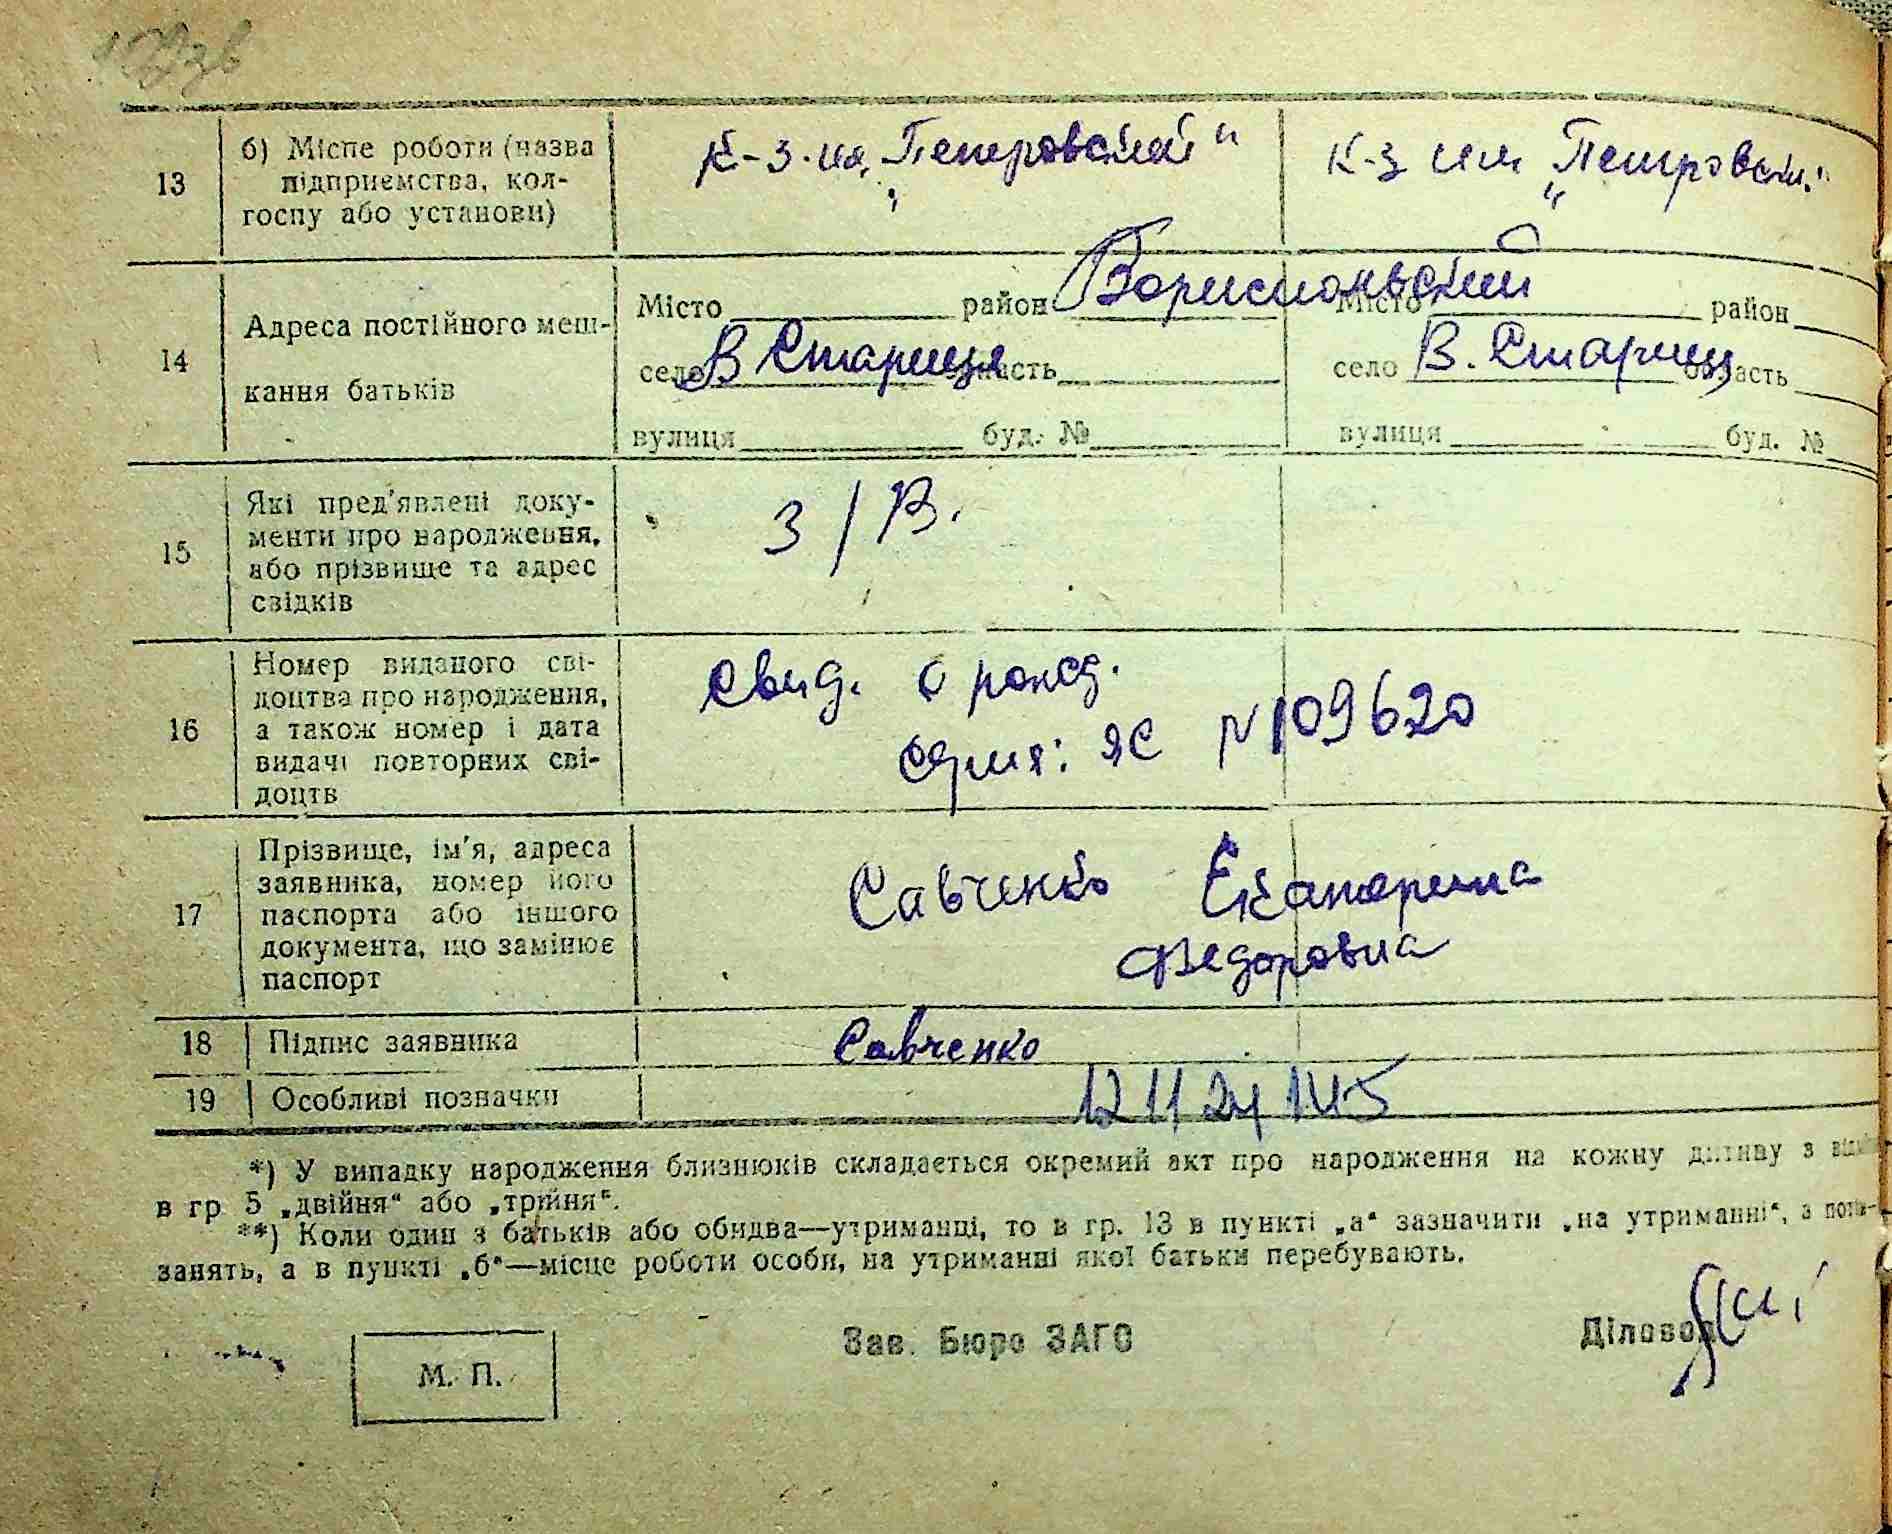 13
б) Місце роботи (назва
підприємства, кол-
госпу або установи)
к-з им. „Петровский"
К-з им „Петровск."
14
Адреса постійного меш-
кання батьків
Місто район Бориспольский Місто район
село В Старица область село В. Стариц область
вулиця буд. № вулиця буд. №
15
Які пред'явлені доку-
менти про народження,
або прізвище та адрес
свідків
З/В.
16
Номер виданого сві-
доцтва про народження,
а також номер і дата
видачі повторних сві-
доцтв
Свид. о рожд.
серия: ЯС N 109620
17
Прізвище, ім'я, адреса
заявника, номер його
паспорта або іншого
документа, що замінює
паспорт
Савченко Екатерина
Федоровна
18 Підпис заявника Савченко
19 Особливі позначки
*) У випадку народження близнюків складається окремий акт про народження на кожну дитину з
в гр 5 „двійня" або „трійня".
**) Коли один з батьків або обидва—утриманці, то в гр. 13 в пункті „а" зазначити „на утриманні", а
занять, а в пункті „б"—місце роботи особи, на утриманні якої батьки перебувають.
М. П.
Зав. Бюро ЗАГС
Діловод